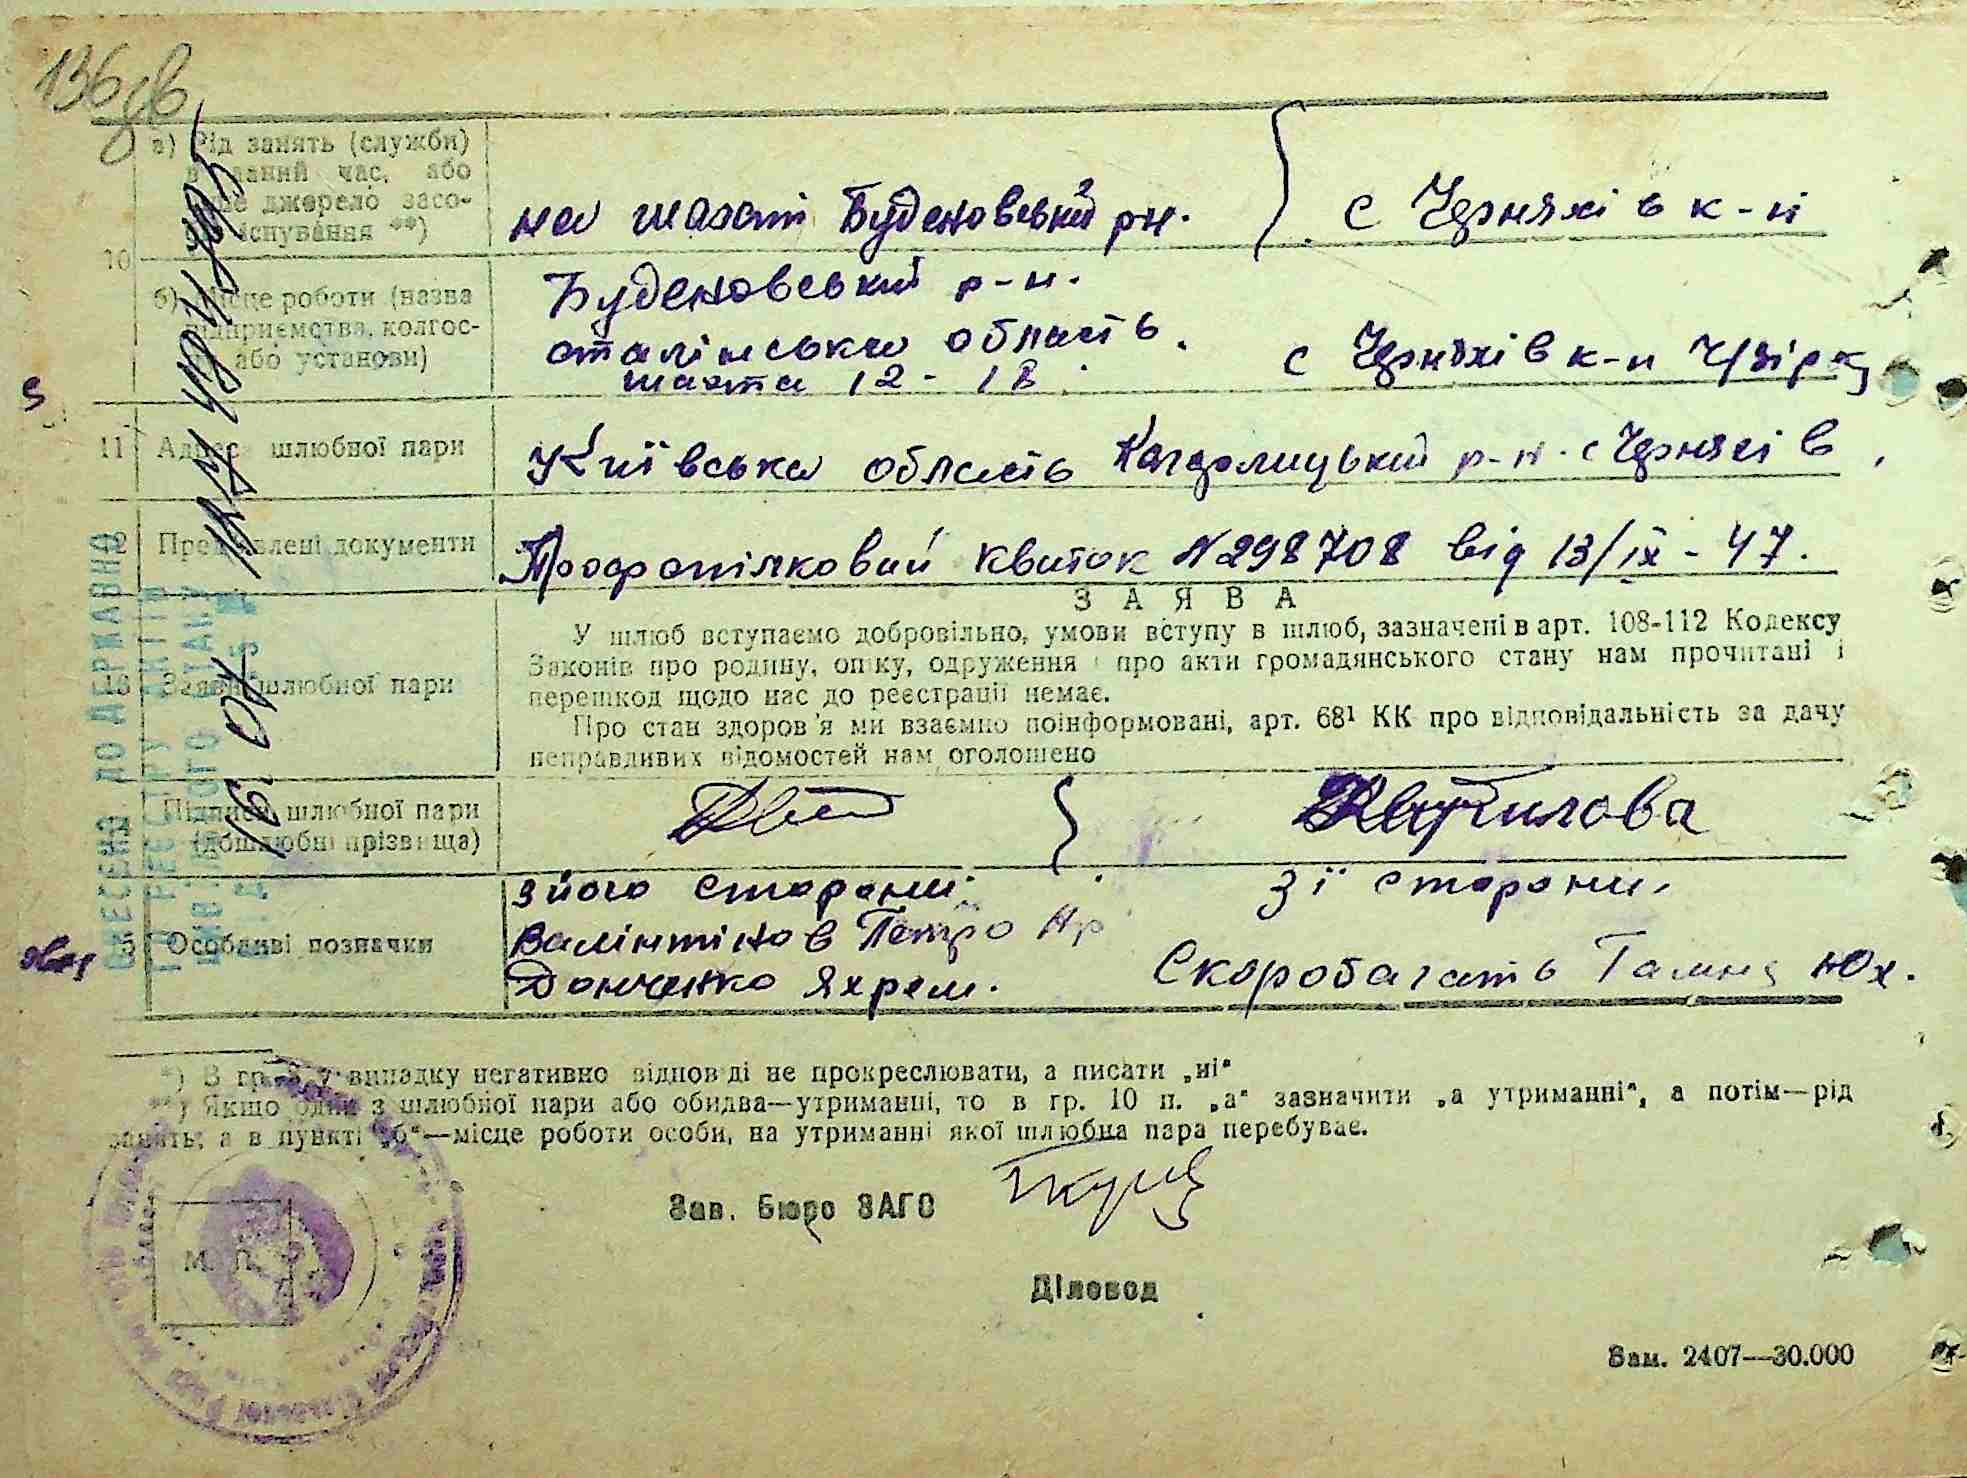 136 зв
а) Рід занять (служби)
в даний час, або
інше джерело засо-
бів існування **)
на шахті Буденовський рн. с Черняхів к-п
10
б) Місце роботи (назва
підприємства, колгос-
пу або установи)
Буденовський р-н.
сталінська область.
шахта 12-18
с Черняхів к-п
11 Адреса шлюбної пари
Київська область Кагарлицький р-н. с Черняхів,
12 Пред'явлені документи
Профспілковий квиток №298708 від 13/IX-47.
13 Заява шлюбної пари
ЗАЯВА
У шлюб вступаємо добровільно, умови вступу в шлюб, зазначені в арт. 108-112 Кодексу
Законів про родину, опіку, одруження і про акти громадянського стану нам прочитані і
перешкод щодо нас до реєстрації немає.
Про стан здоров'я ми взаємно поінформовані, арт. 68¹ КК про відповідальність за дачу
неправдивих відомостей нам оголошено
Підписи шлюбної пари
(дошлюбні прізвища)
Особливі позначки
з його сторони. зі сторони.
Валінтінов Петро
Донченко Яхрем. Скоробагать Галина Юх.
ВНЕСЕНО ДО ДЕРЖАВНОГО
РЕЄСТРУ АКТІВ
ЦИВІЛЬНОГО СТАНУ
*) В гр. 8 у випадку негативно відповіді не прокреслювати, а писати „ні"
**) Якщо один з шлюбної пари або обидва—утриманці, то в гр. 10 п. „а" зазначити „а утриманні", а потім—рід
занять; а в пункті „б"—місце роботи особи, на утриманні якої шлюбна пара перебуває.
Зав. Бюро ЗАГС
М. П.
Діловод
Зам. 2407—30.000